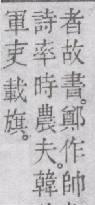 者故書。鄭作帥
詩率時農夫。韓
軍吏載旗。